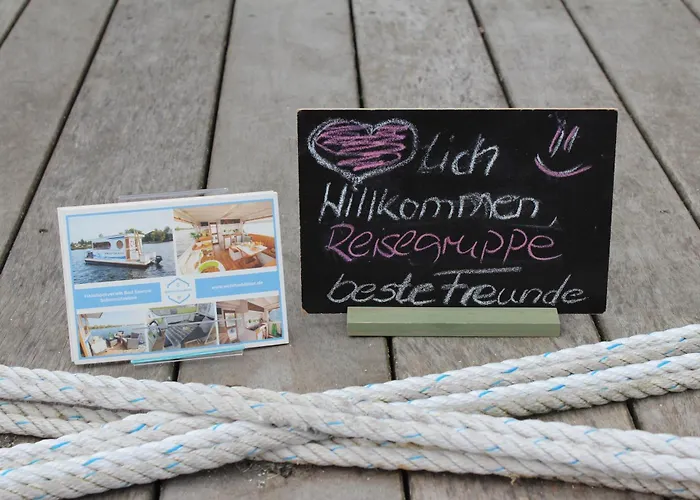 lich
Willkommen,
Reisegruppe
beste Freunde